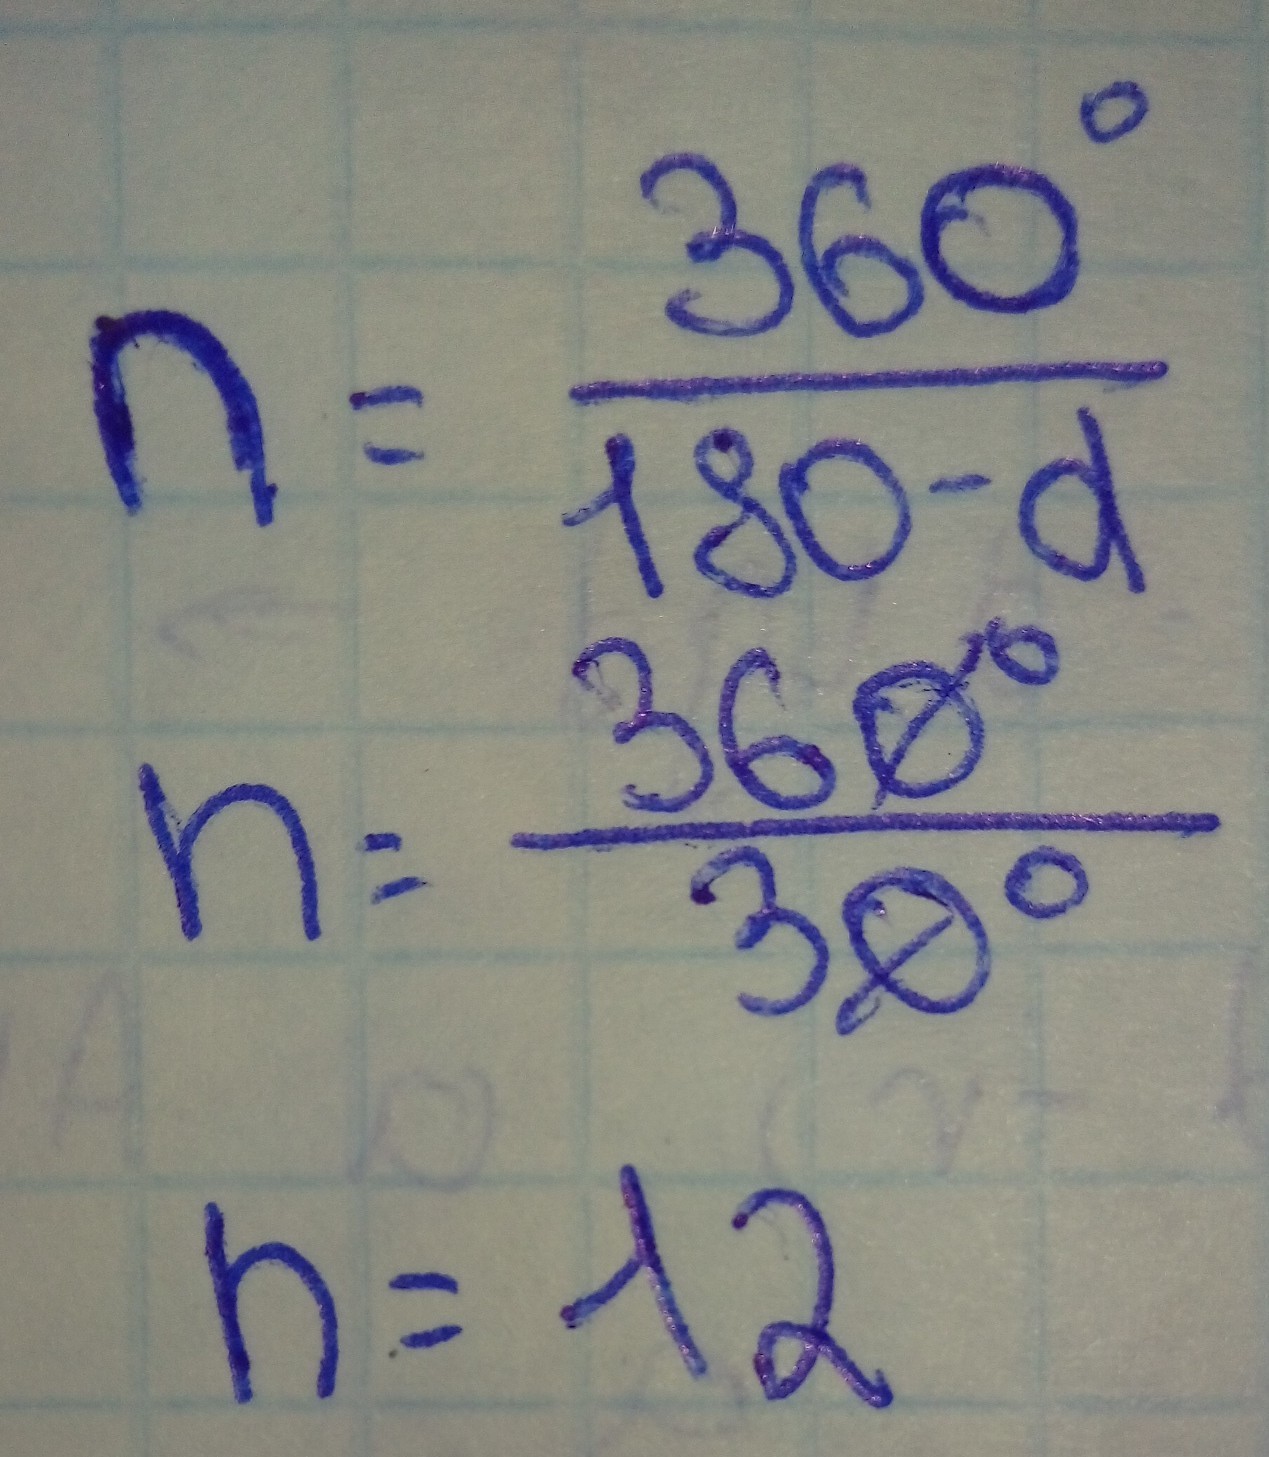 n = 360° / 180 - α
n = 360° / 30°
n = 12